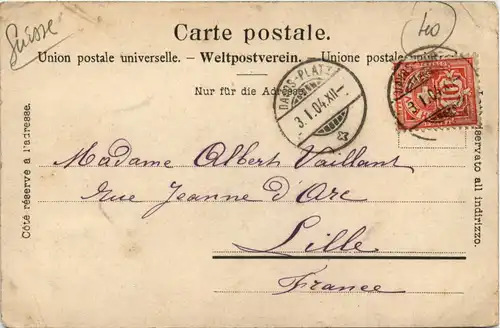 Suisse
Carte postale.
400
Union postale universelle. – Weltpostverein. – Unione postale universale
Nur für die Adresse
DAVOS-PLATZ
3.I.04.XII–
3.I.04
10
Côté réservé à l'adresse.
riservato all indirizzo.
Madame Albert Vaillant
rue Jeanne d'Arc
Lille
France